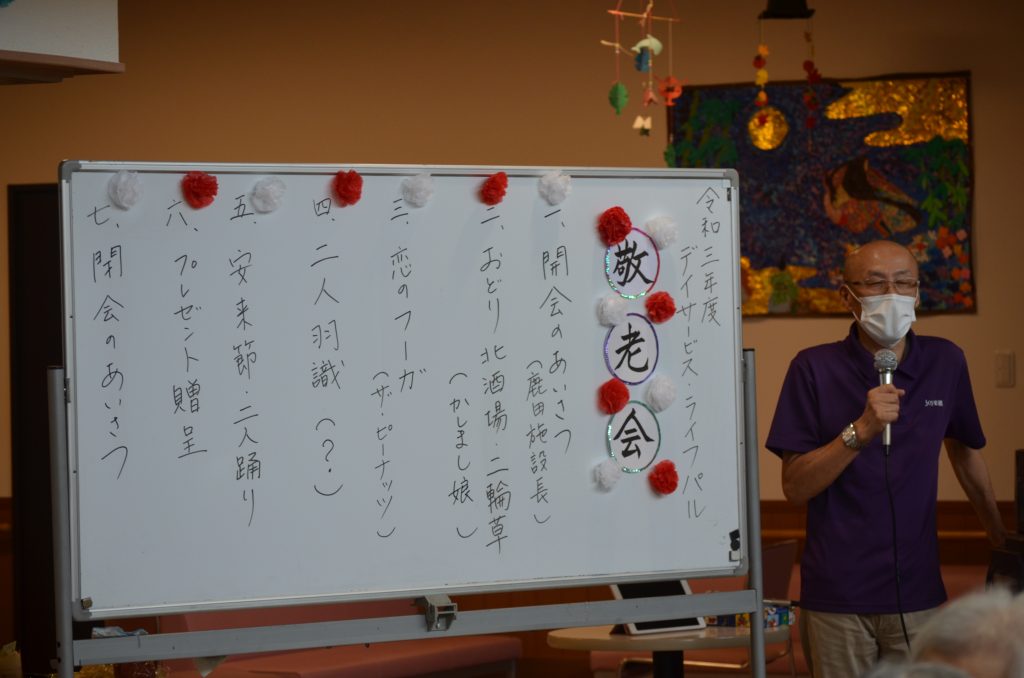 令和三年度
デイサービス・ライフパル
敬老会
一、開会のあいさつ
(鹿田施設長)
二、おどり 北酒場・二輪草
(かしまし娘)
三、恋のフーガ
(ザ・ピーナッツ)
四、二人羽識(?)
五、安来節・二人踊り
六、プレゼント贈呈
七、閉会のあいさつ